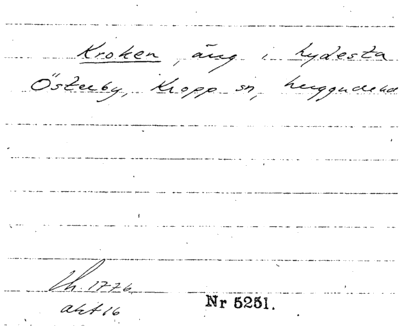 Kroken, äng i Lydesta
Österby, Kropp sn, Luggude hd
Lh. 1776
akt 16
Nr 5251.